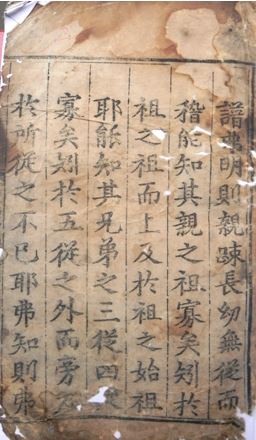 譜明則親踈長幼無從而
稽能知其親之祖寡矣矧於
祖之祖而上及於祖之始祖
耶能知其兄弟之三從四
寡矣矧於五從之外而旁及
於所從之不巳耶弗知則弗